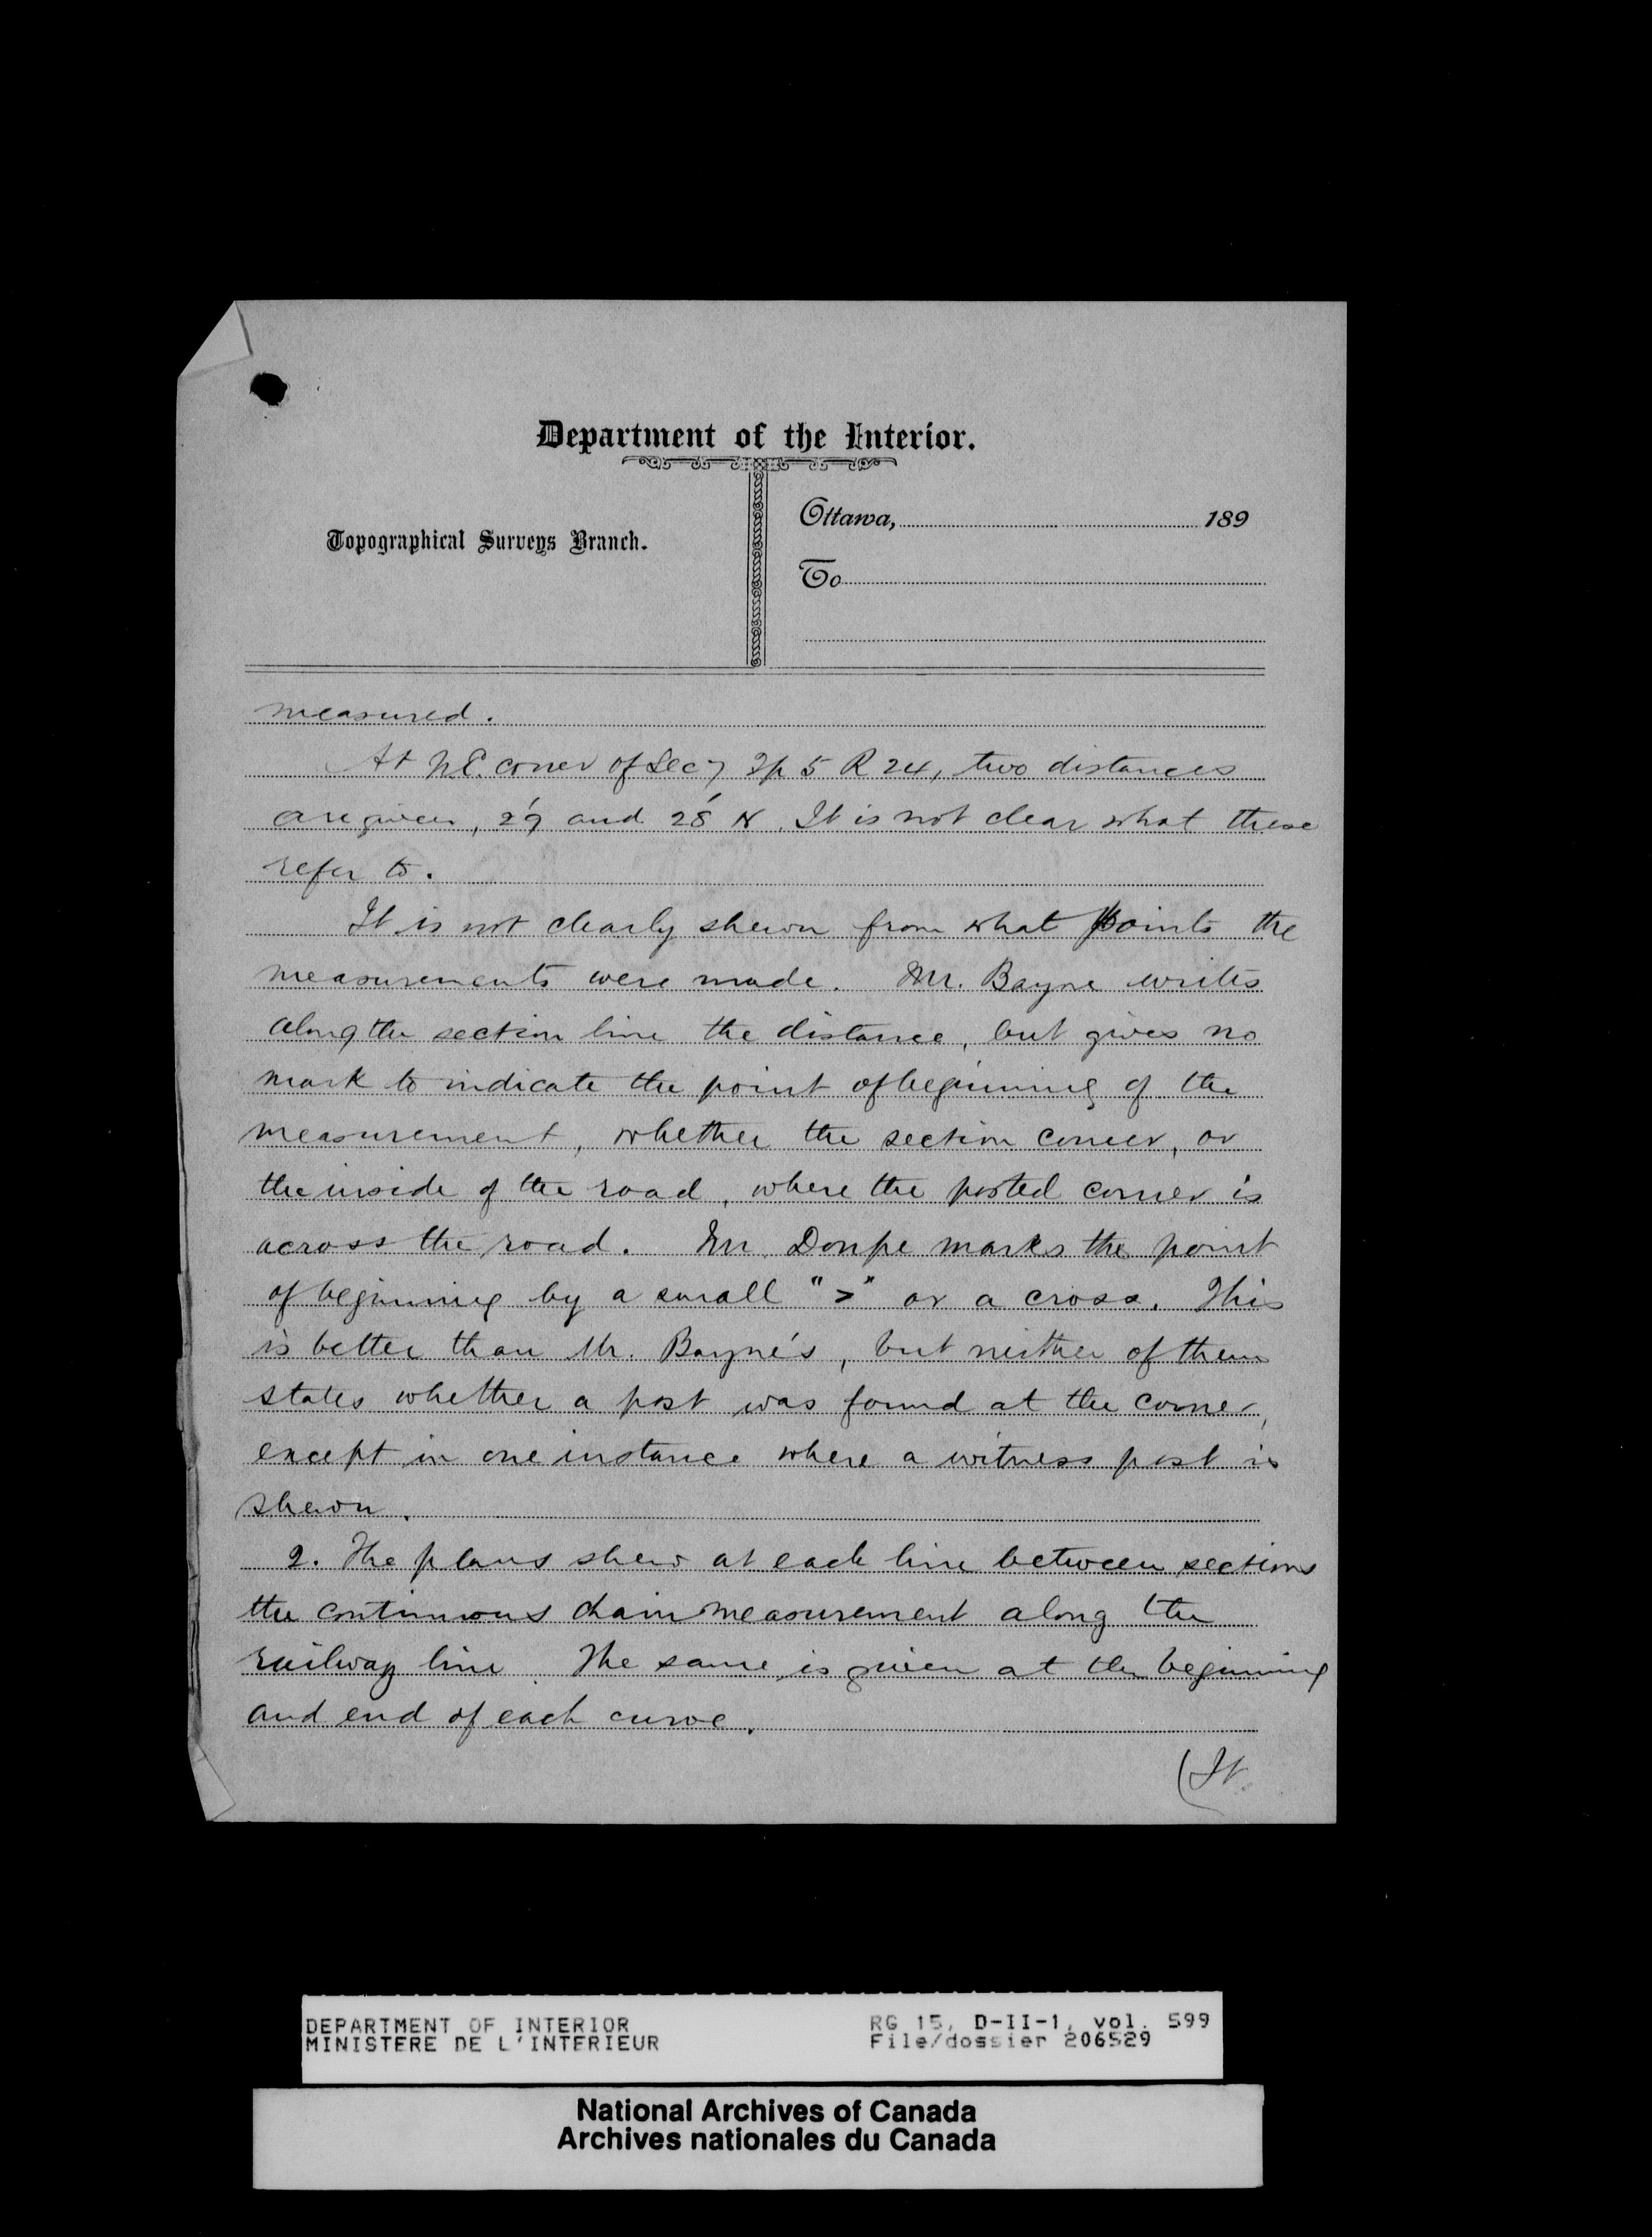 Department of the Interior.
Topographical Surveys Branch.
Ottawa, 189
To
measured.
At N.E. corner of Sec 7 Tp 5 R 24, two distances
are given, 29' and 28' N. It is not clear what these
refer to.
It is not clearly shewn from what points the
measurements were made. Mr. Bayne writes
along the section line the distance, but gives no
mark to indicate the point of beginning of the
measurement, whether the section corner, or
the inside of the road, where the posted corner is
across the road. Mr. Doupe marks the point
of beginning by a small ">" or a cross. This
is better than Mr. Bayne's, but neither of them
states whether a post was found at the corner,
except in one instance where a witness post is
shewn.
2. The plans shew at each line between sections
the continuous chain measurement along the
railway line. The same is given at the beginning
and end of each curve.
(It
DEPARTMENT OF INTERIOR
MINISTERE DE L'INTERIEUR
RG 15, D-II-1, vol. 599
File/dossier 206529
National Archives of Canada
Archives nationales du Canada